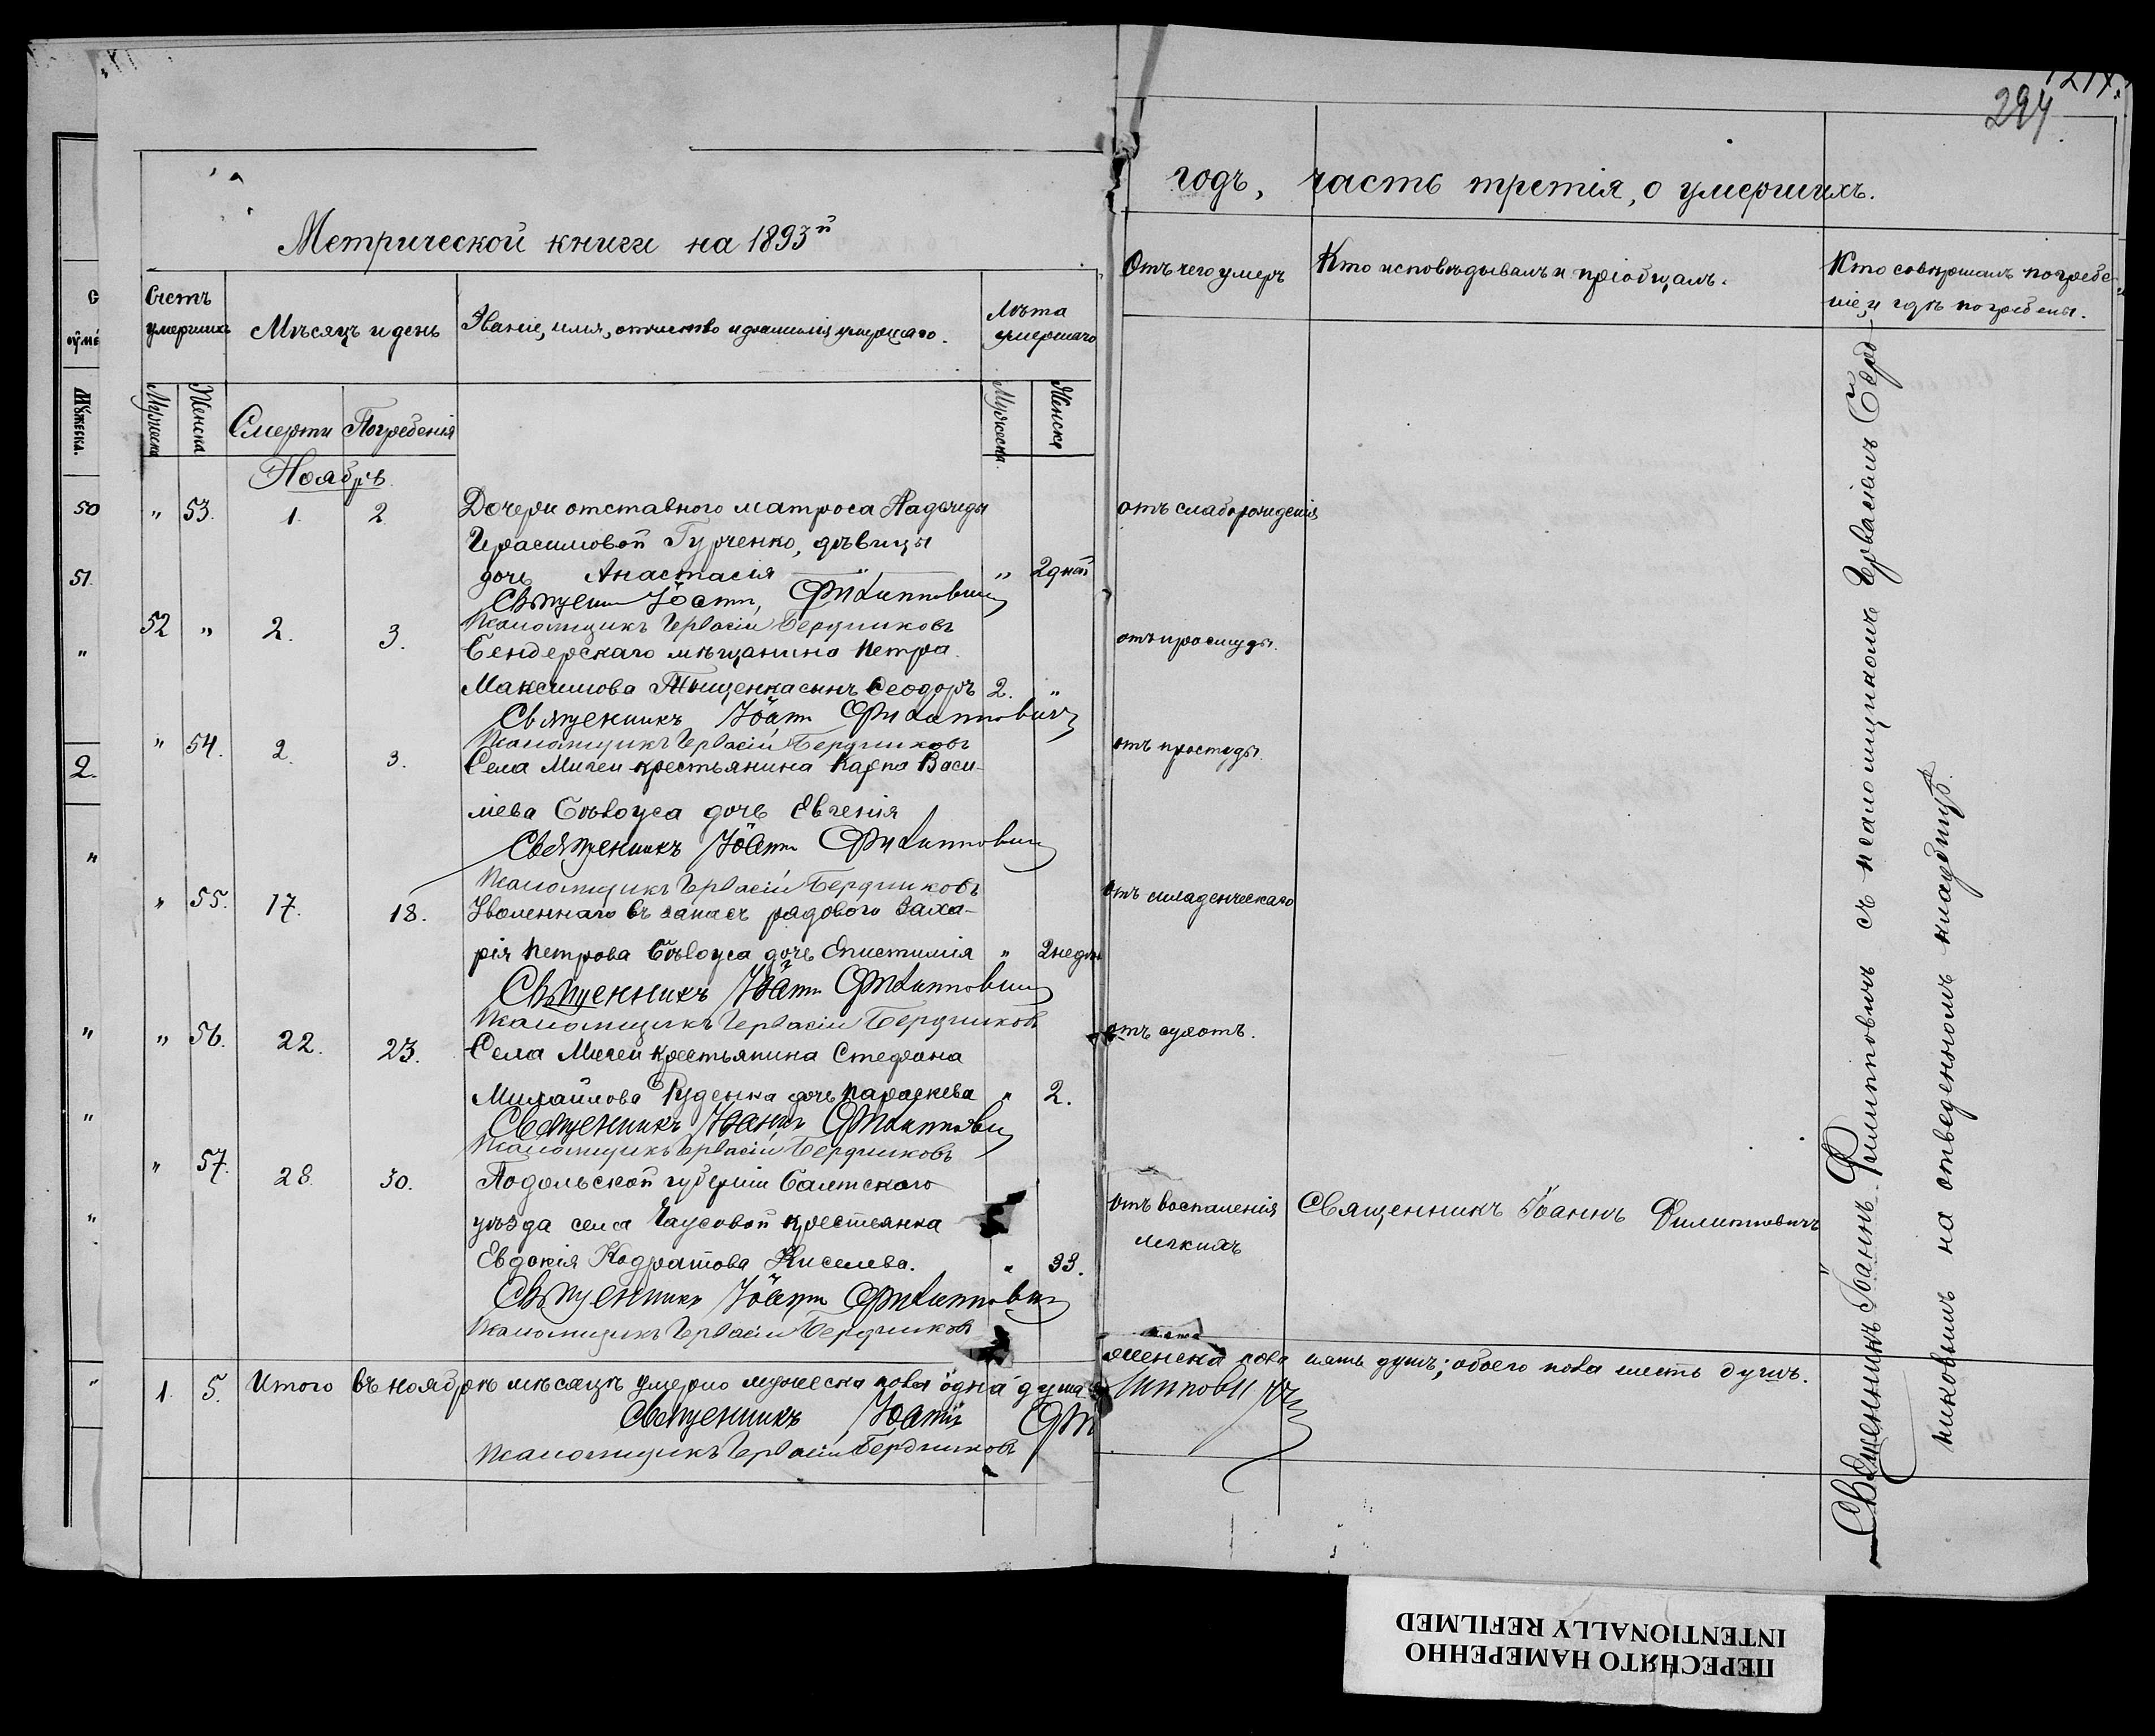 294
Метрической книги на 1893й
годъ, часть третія, о умершихъ.
Счетъ умершихъ
Мѣсяцъ и день
Званіе, имя, отчество и фамилія умершаго.
Лѣта умершаго
Отъ чего умеръ
Кто исповѣдывалъ и пріобщалъ.
Кто совершалъ погребе-
ніе, и гдѣ погребены.
Мужеска
Женска
Смерти
Погребенія
Мужеска.
Женска
Ноябрь
" 53. 1. 2 Дочери отставного матроса Надежды отъ слаборожденія
Герасимовой Гурченко, дѣвицы
дочь Анастасія " 2 дней
Священникъ Іоаннъ Филипповичъ
Псаломщикъ Гервасій Бердниковъ
52 " 2. 3. Бендерскаго мѣщанина Петра отъ простуды.
Максимова Тыщенка сынъ Ѳеодоръ 2. "
Священникъ Іоаннъ Филипповичъ
Псаломщикъ Гервасій Бердниковъ
" 54. 2. 3. Села Мигеи крестьянина Карпа Васи- отъ простуды.
ліева Бѣлоуса дочь Евгенія
Священникъ Іоаннъ Филипповичъ
Псаломщикъ Гервасій Бердниковъ
" 55. 17. 18. Уволеннаго въ запасъ рядового Заха- отъ младенческаго
рія Петрова Бѣлоуса дочь Епистимія " 2 недѣль
Священникъ Іоаннъ Филипповичъ
Псаломщикъ Гервасій Бердниковъ
" 56. 22. 23. Села Мигеи крестьянина Стефана отъ сухотъ.
Михайлова Руденка дочь Параскева " 2.
Священникъ Іоаннъ Филипповичъ
Псаломщикъ Гервасій Бердниковъ
" 57. 28. 30. Подольской губерніи Балтскаго
уѣзда села Чаусовой крестьянка отъ воспаленія Священникъ Іоаннъ Филипповичъ
легкихъ
Евдокія Кодратова Киселева. " 33.
Священникъ Іоаннъ Филипповичъ
Псаломщикъ Гервасій Бердниковъ
1. 5. Итого въ ноябрѣ мѣсяцѣ умерло мужеска пола одна душа женска пола пять душъ; обоего пола шесть душъ.
Священникъ Іоаннъ Филипповичъ
Псаломщикъ Гервасій Бердниковъ
Священникъ Іоаннъ Филипповичъ съ псаломщикомъ Гервасіемъ Берд-
никовымъ на отведенномъ кладбищѣ.
50
51.
"
2.
"
"
"
"
"
ПЕРЕСНЯТО НАМЕРЕННО
INTENTIONALLY REFILMED